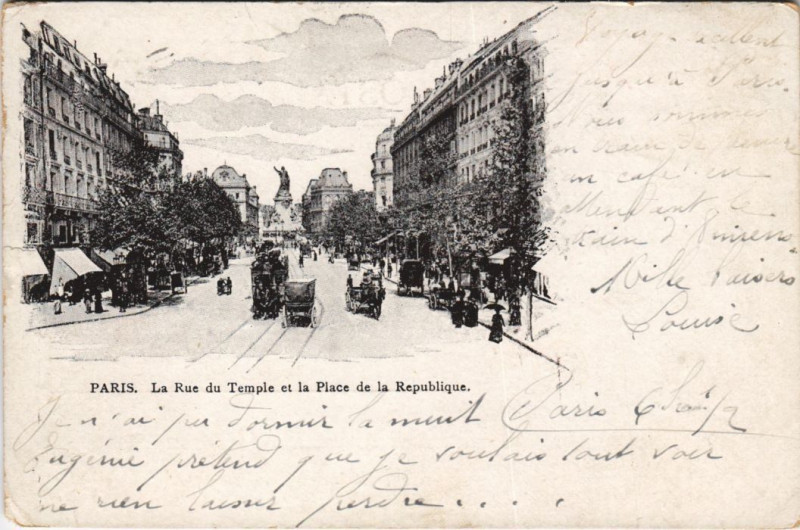 Voyage excellent
jusqu'à Paris.
Nous sommes
en train de
un café en
attendant le
train d'
Mille baisers
Louise
PARIS. La Rue du Temple et la Place de la Republique.
Je n'ai pu dormir la nuit Paris
Eugénie prétend que je voulais tout voir
ne rien laisser perdre....